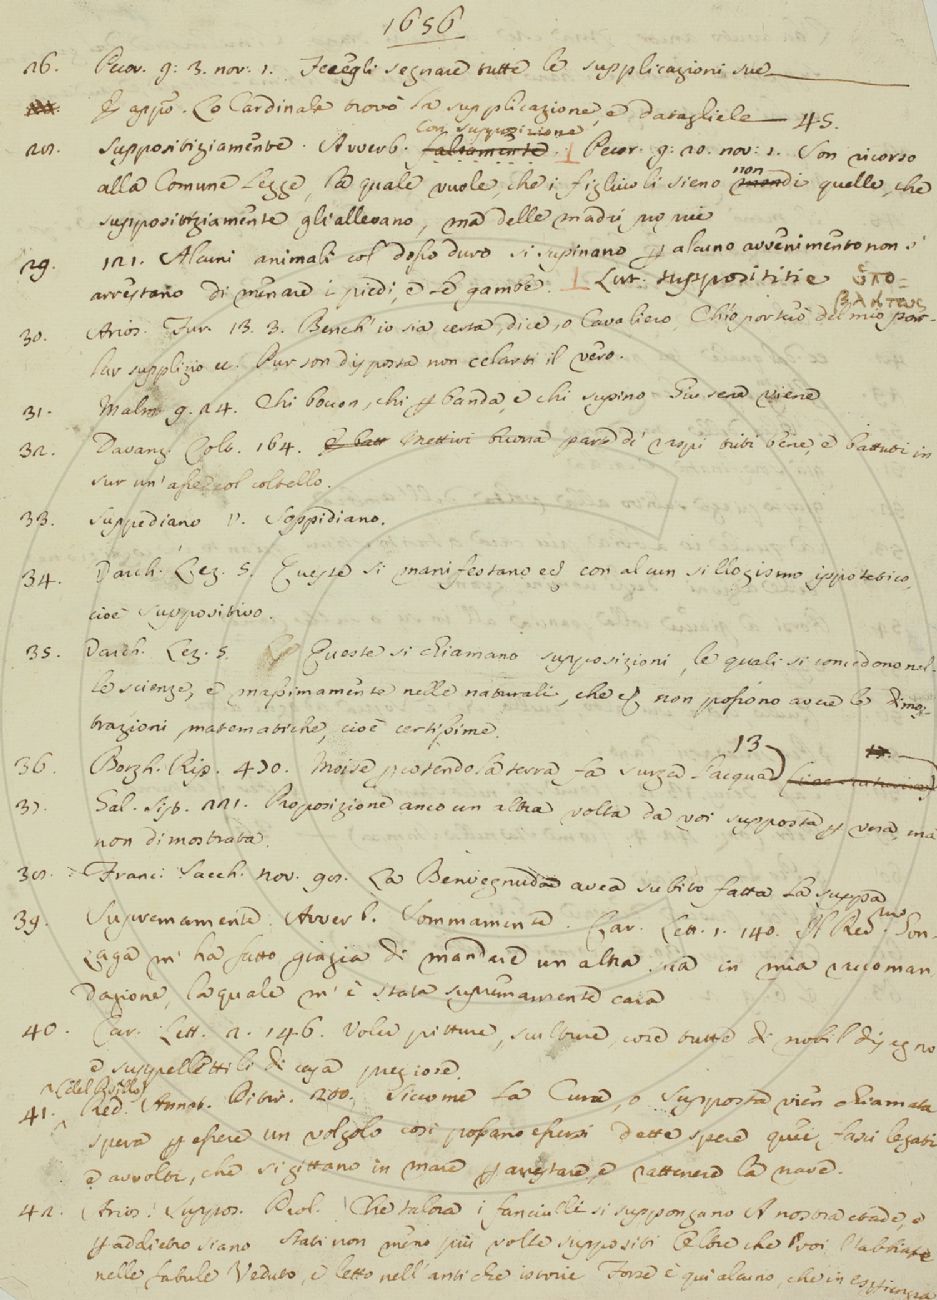 1656
26. Pecor. g: 3. nov. 1. Fecegli segnare tutte le supplicazioni sue
E appo. Lo Cardinale trovò la supplicazione, e datagliele 45.
con supposizione
28. Suppositiziamente. Avverb. Pecor. g: 20. nov: 1. Son ricorso
non
alla Comune Legge, la quale vuole, che i figliuoli sieno di quelle, che
suppositiziamente gli allevano, ma delle madri
29. 121. Alcuni animali col dosso duro si supinano alcuno avvenimento non s'
arrestano di menare i piedi, e le gambe. Lat. supposititie ὑπο-
30. Arios. Fur. 13. 3. Bench' io sia certa, dice, o Cavaliero, Ch'io porterò del mio par-
lar supplizio ec. Pur son disposta non celarti il vero.
31. Malm. g. 24. Chi boccon, chi banda, e chi supino Giu sene viene
32. Davanz. Colt. 164. Mettivi buona parte di raspi triti bene, e battuti in
sur un' asse col coltello.
33. Suppediano V. Soppidiano.
34. Varch. Lez. 5. Queste si manifestano con alcun sillogismo ippotetico,
cioè suppositivo.
35. Varch. Lez. 5. Queste si chiamano supposizioni, le quali si concedono nel-
le scienze, e massimamente nelle naturali, che non possono avere le dimos-
trazioni matematiche, cioè certissime.
13
36. Borgh. Rip. 430. Moisè percotendo la terra fa surger l'acqua
37. Gal. Sist. 221. Proposizione anco un altra volta da voi supposta vera, ma
non dimostrata.
38. Franc. Sacch. nov. 98. La Benvegnuda avea subito fatta la suppa
39. Supremamente. Avverb. Sommamente. Car. Lett. 1. 140. Il Redmo Gon-
zaga m' ha fatto grazia di mandare un altra sua in mia raccoman
dazione, la quale m' è stata supremamente cara
40. Car. Lett. 2. 146. Volea pitture, sculture, cose tutte di nobil disegno
e suppellettili di casa preziose.
41. Red. Annot. Ditir. 200. Siccome la Cura, o Supposta vien chiamata
spera essere un volgolo così possano essersi dette spere quei fasci legati
e avvolti, che si gittano in mare arrestare, e rattenere la nave.
42. Arios. Suppos. Prol. Che talora i fanciulli si suppongano A nostra etade, e
addietro siano Stati non meno più volte suppositi Oltre che voi l'abbiate
nelle fabule Veduto, e letto nell' antiche istorie Forse è qui alcuno, che in esperienza